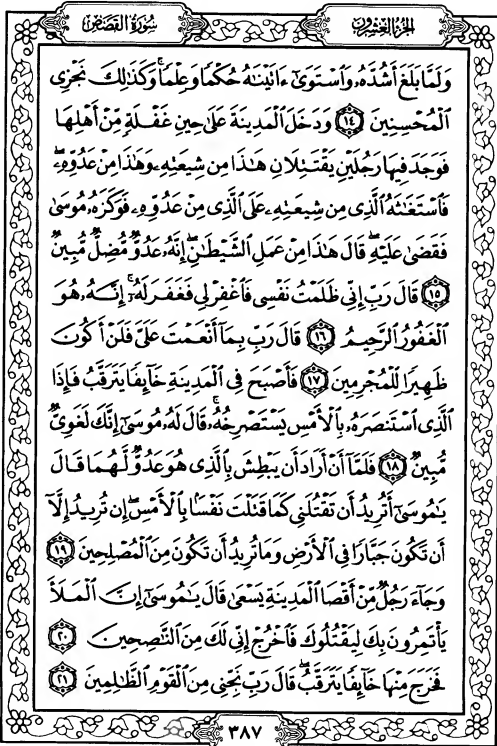 سُورَةُ القَصَصِ
الجُزْءُ العِشْرُونَ
وَلَمَّا بَلَغَ أَشُدَّهُۥ وَٱسْتَوَىٰٓ ءَاتَيْنَٰهُ حُكْمًا وَعِلْمًاۚ وَكَذَٰلِكَ نَجْزِى
ٱلْمُحْسِنِينَ ١٤ وَدَخَلَ ٱلْمَدِينَةَ عَلَىٰ حِينِ غَفْلَةٍ مِّنْ أَهْلِهَا
فَوَجَدَ فِيهَا رَجُلَيْنِ يَقْتَتِلَانِ هَٰذَا مِن شِيعَتِهِۦ وَهَٰذَا مِنْ عَدُوِّهِۦۖ
فَٱسْتَغَٰثَهُ ٱلَّذِى مِن شِيعَتِهِۦ عَلَى ٱلَّذِى مِنْ عَدُوِّهِۦ فَوَكَزَهُۥ مُوسَىٰ
فَقَضَىٰ عَلَيْهِۖ قَالَ هَٰذَا مِنْ عَمَلِ ٱلشَّيْطَٰنِۖ إِنَّهُۥ عَدُوٌّ مُّضِلٌّ مُّبِينٌ
١٥ قَالَ رَبِّ إِنِّى ظَلَمْتُ نَفْسِى فَٱغْفِرْ لِى فَغَفَرَ لَهُۥٓۚ إِنَّهُۥ هُوَ
ٱلْغَفُورُ ٱلرَّحِيمُ ١٦ قَالَ رَبِّ بِمَآ أَنْعَمْتَ عَلَىَّ فَلَنْ أَكُونَ
ظَهِيرًا لِّلْمُجْرِمِينَ ١٧ فَأَصْبَحَ فِى ٱلْمَدِينَةِ خَآئِفًا يَتَرَقَّبُ فَإِذَا
ٱلَّذِى ٱسْتَنصَرَهُۥ بِٱلْأَمْسِ يَسْتَصْرِخُهُۥۚ قَالَ لَهُۥ مُوسَىٰٓ إِنَّكَ لَغَوِىٌّ
مُّبِينٌ ١٨ فَلَمَّآ أَنْ أَرَادَ أَن يَبْطِشَ بِٱلَّذِى هُوَ عَدُوٌّ لَّهُمَا قَالَ
يَٰمُوسَىٰٓ أَتُرِيدُ أَن تَقْتُلَنِى كَمَا قَتَلْتَ نَفْسًۢا بِٱلْأَمْسِۖ إِن تُرِيدُ إِلَّآ
أَن تَكُونَ جَبَّارًا فِى ٱلْأَرْضِ وَمَا تُرِيدُ أَن تَكُونَ مِنَ ٱلْمُصْلِحِينَ ١٩
وَجَآءَ رَجُلٌ مِّنْ أَقْصَا ٱلْمَدِينَةِ يَسْعَىٰ قَالَ يَٰمُوسَىٰٓ إِنَّ ٱلْمَلَأَ
يَأْتَمِرُونَ بِكَ لِيَقْتُلُوكَ فَٱخْرُجْ إِنِّى لَكَ مِنَ ٱلنَّٰصِحِينَ ٢٠
فَخَرَجَ مِنْهَا خَآئِفًا يَتَرَقَّبُۖ قَالَ رَبِّ نَجِّنِى مِنَ ٱلْقَوْمِ ٱلظَّٰلِمِينَ ٢١
٣٨٧